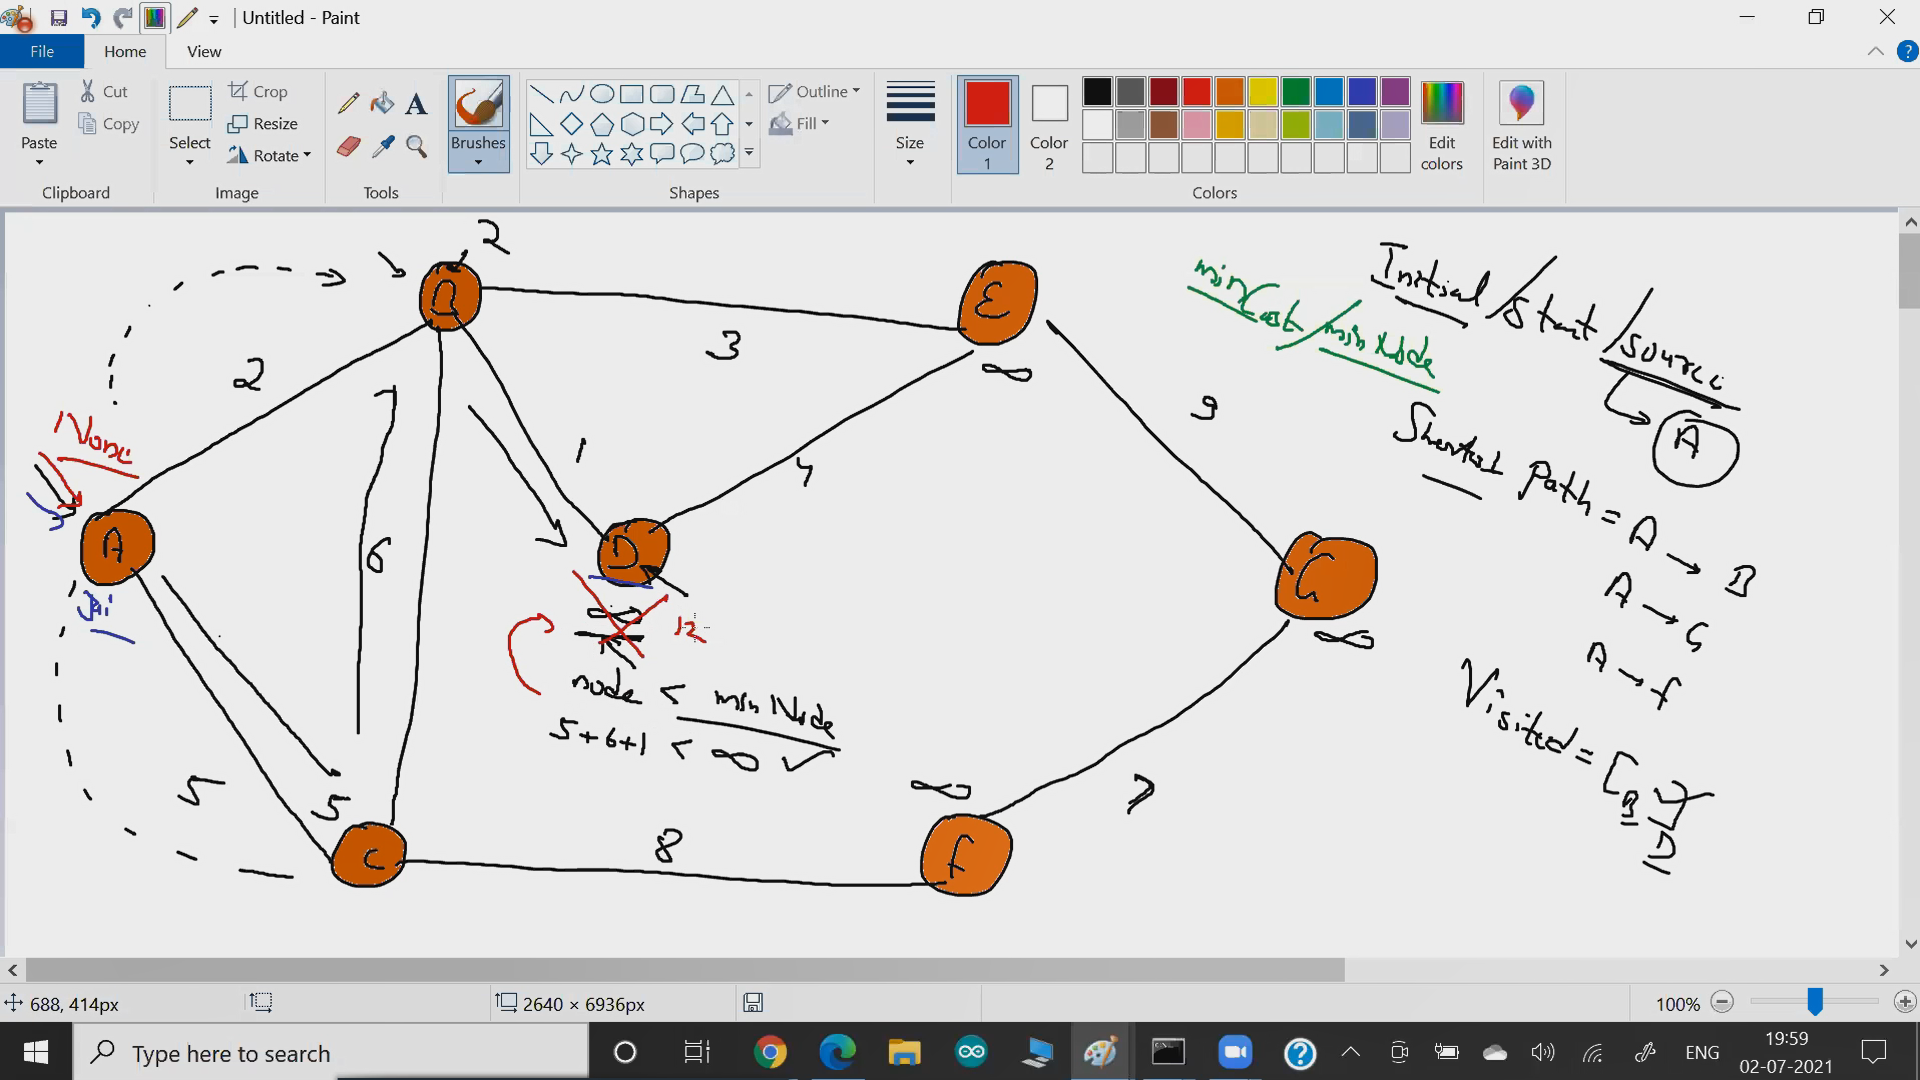 Untitled - Paint
File
Home
View
Paste
Cut
Copy
Clipboard
Select
Crop
Resize
Rotate
Image
Tools
Brushes
Shapes
Outline
Fill
Size
Color 1
Color 2
Edit colors
Colors
Edit with Paint 3D
2
E
3
∞
2
None
A
1
4
9
6
D
∞
12
node < minNode
5+6+1 < ∞ ✓
5
5
C
8
∞
f
7
G
∞
minCost/minNode
Initial/Start/source
A
Shortest Path = A → B
A → G
A → f
Visited = [B
D
688, 414px
2640 × 6936px
100%
Type here to search
ENG
19:59
02-07-2021